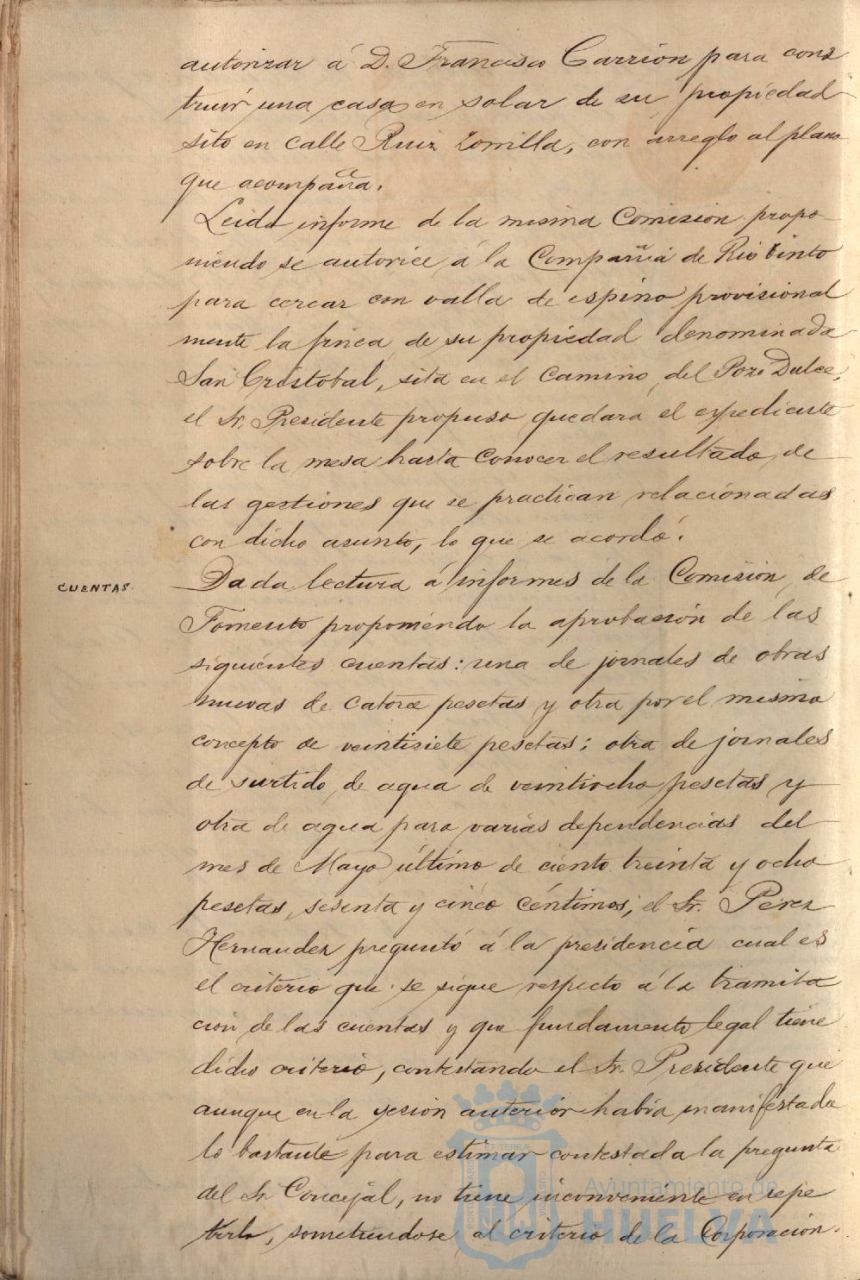 autorizar á D. Francisco Carrion para cons
truir una casa en solar de su propiedad
sito en calle Ruiz Zorrilla, con arreglo al plano
que acompaña.
Leido informe de la misma Comision propo-
niendo se autorice á la Compañia de Rio Tinto
para cercar con valla de espino provisional
mente la finca de su propiedad denominada
San Cristobal, sita en el camino del Pozo Dulce,
el Sr. Presidente propuso quedara el expediente
sobre la mesa hasta conocer el resultado de
las gestiones que se practican relacionadas
con dicho asunto, lo que se acordó.
CUENTAS.
Dada lectura á informes de la Comision de
Fomento proponiendo la aprobación de las
siguientes cuentas: una de jornales de obras
nuevas de catorce pesetas y otra por el mismo
concepto de veintisiete pesetas; otra de jornales
de surtido de agua de veintiocho pesetas y
otra de agua para varias dependencias del
mes de Mayo último de ciento treinta y ocho
pesetas, sesenta y cinco céntimos, el Sr. Perez
Hernandez preguntó á la presidencia cual es
el criterio que se sigue respecto á la tramita
cion de las cuentas y que fundamento legal tiene
dicho criterio, contestando el Sr. Presidente que
aunque en la sesion anterior habia manifestado
lo bastante para estimar contestada la pregunta
del Sr. Concejal, no tiene inconveniente en repe
tirlo, sometiendose al criterio de la Corporación.
Ayuntamiento de
HUELVA